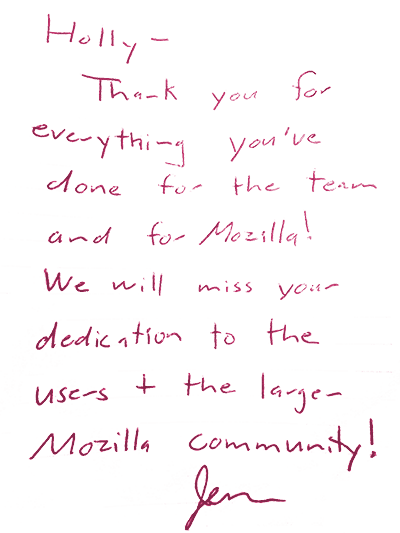 Holly -
Thank you for
everything you've
done for the team
and for Mozilla!
We will miss your
dedication to the
users + the larger
Mozilla community!
Jen